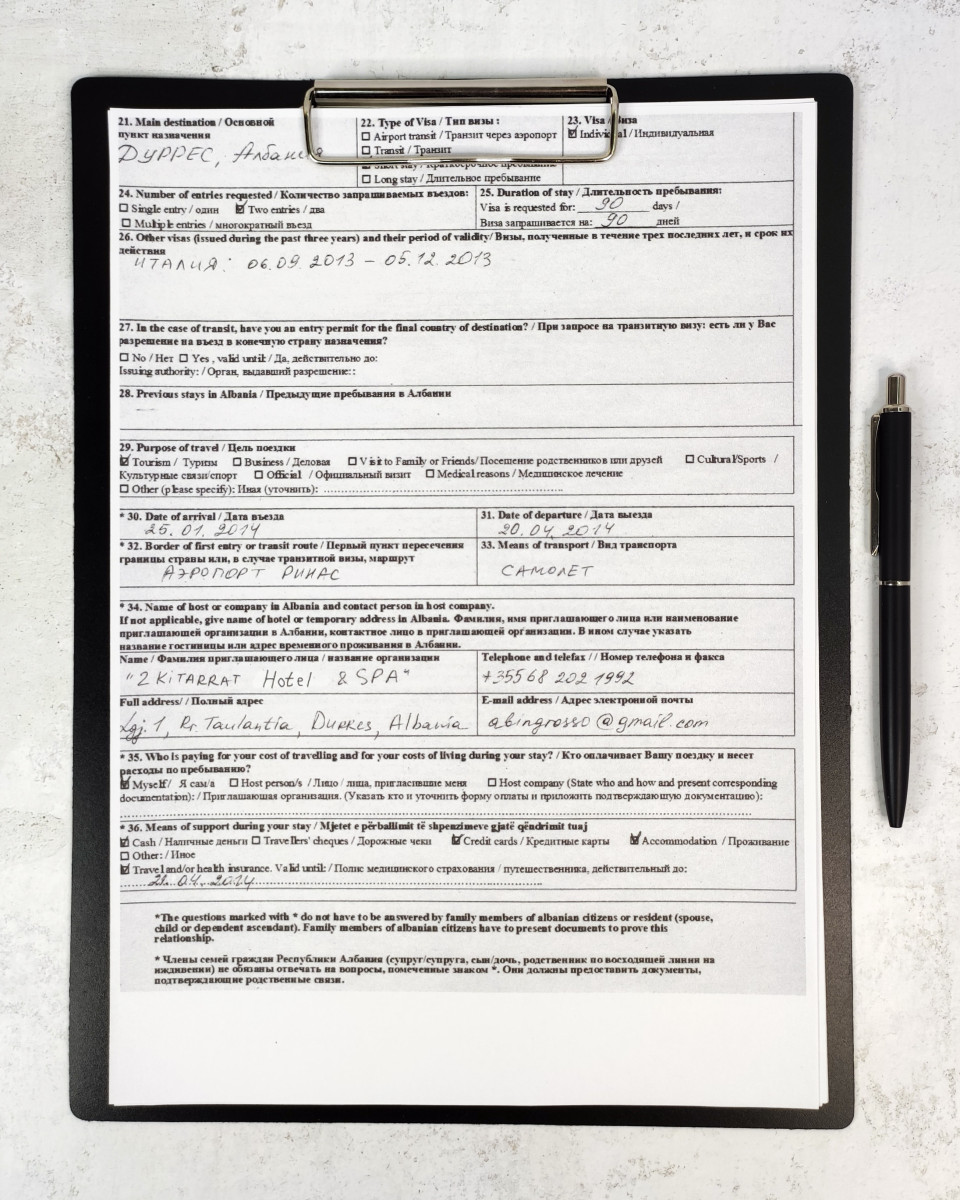 21. Main destination / Основной
пункт назначения
ДУРРЕС, Албания
22. Type of Visa / Тип визы :
☐ Airport transit / Транзит через аэропорт
☐ Transit / Транзит
☑ Short stay / Краткосрочное пребывание
☐ Long stay / Длительное пребывание
23. Visa / Виза
☑ Individual / Индивидуальная
24. Number of entries requested / Количество запрашиваемых въездов:
☐ Single entry / один ☑ Two entries / два
☐ Multiple entries / многократный въезд
25. Duration of stay / Длительность пребывания:
Visa is requested for: 90 days /
Виза запрашивается на: 90 дней
26. Other visas (issued during the past three years) and their period of validity/ Визы, полученные в течение трех последних лет, и срок их
действия
ИТАЛИЯ: 06.09.2013 – 05.12.2013
27. In the case of transit, have you an entry permit for the final country of destination? / При запросе на транзитную визу: есть ли у Вас
разрешение на въезд в конечную страну назначения?
☐ No / Нет ☐ Yes , valid until: / Да, действительно до:
Issuing authority: / Орган, выдавший разрешение::
28. Previous stays in Albania / Предыдущие пребывания в Албании
—
29. Purpose of travel / Цель поездки
☑ Tourism / Туризм ☐ Business / Деловая ☐ Visit to Family or Friends/ Посещение родственников или друзей ☐ Cultural/Sports /
Культурные связи/спорт ☐ Official / Официальный визит ☐ Medical reasons / Медицинское лечение
☐ Other (please specify): Иная (уточнить): ................................
* 30. Date of arrival / Дата въезда
25. 01. 2014
31. Date of departure / Дата выезда
20. 04. 2014
* 32. Border of first entry or transit route / Первый пункт пересечения
границы страны или, в случае транзитной визы, маршрут
АЭРОПОРТ РИНАС
33. Means of transport / Вид транспорта
САМОЛЕТ
* 34. Name of host or company in Albania and contact person in host company.
If not applicable, give name of hotel or temporary address in Albania. Фамилия, имя приглашающего лица или наименование
приглашающей организации в Албании, контактное лицо в приглашающей организации. В ином случае указать
название гостиницы или адрес временного проживания в Албании.
Name / Фамилия приглашающего лица / название организации
"2 KITARRAT Hotel & SPA"
Telephone and telefax / / Номер телефона и факса
+35568 202 1992
Full address/ / Полный адрес
Lgj. 1, Rr. Taulantia, Durres, Albania
E-mail address / Адрес электронной почты
abingrosso@gmail.com
* 35. Who is paying for your cost of travelling and for your costs of living during your stay? / Кто оплачивает Вашу поездку и несет
расходы по пребыванию?
☑ Myself / Я сам/а ☐ Host person/s / Лицо / лица, пригласившие меня ☐ Host company (State who and how and present corresponding
documentation): / Приглашающая организация. (Указать кто и уточнить форму оплаты и приложить подтверждающую документацию):
* 36. Means of support during your stay / Mjetet e përballimit të shpenzimeve gjatë qëndrimit tuaj
☑ Cash / Наличные деньги ☐ Travellers' cheques / Дорожные чеки ☑ Credit cards / Кредитные карты ☑ Accommodation / Проживание
☐ Other: / Иное
☑ Travel and/or health insurance. Valid until: / Полис медицинского страхования / путешественника, действительный до:
21. 04. 2014
*The questions marked with * do not have to be answered by family members of albanian citizens or resident (spouse,
child or dependent ascendant). Family members of albanian citizens have to present documents to prove this
relationship.
* Члены семей граждан Республики Албания (супруг/супруга, сын/дочь, родственник по восходящей линии на
иждивении) не обязаны отвечать на вопросы, помеченные знаком *. Они должны предоставить документы,
подтверждающие родственные связи.